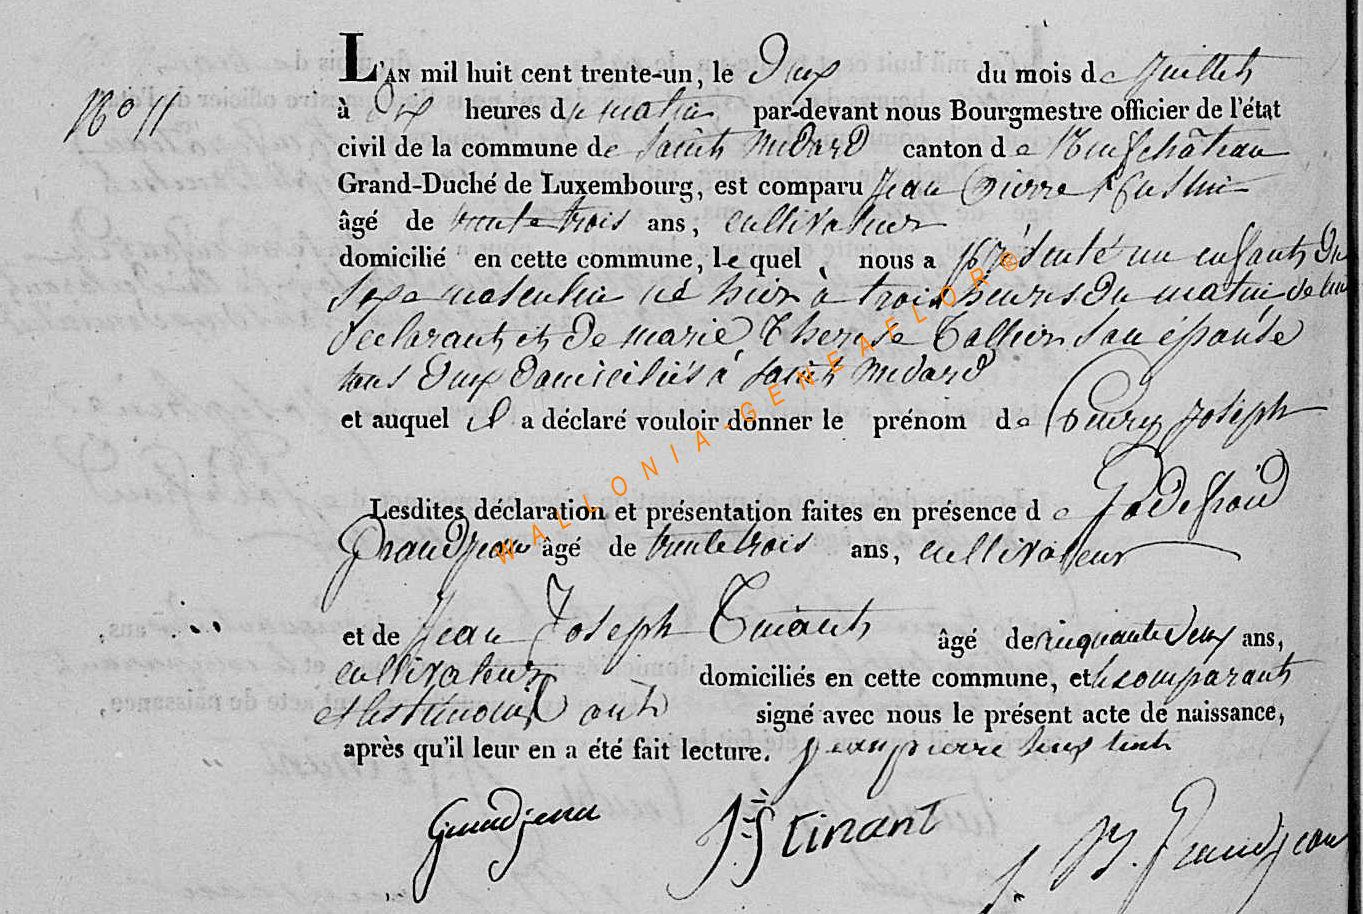 No 11
L'AN mil huit cent trente-un, le Deux du mois de Juillet
à Dix heures du matin par-devant nous Bourgmestre officier de l'état
civil de la commune de Saint Medard canton de Neufchâteau
Grand-Duché de Luxembourg, est comparu Jean Pierre
âgé de trente trois ans, cultivateur
domicilié en cette commune, le quel nous a présenté un enfant du
Sexe masculin né hier à trois heures du matin de lui
déclarant et de marie Therese Collin son épouse
tous deux domiciliés à Saint Medard
et auquel il a déclaré vouloir donner le prénom de Joseph
Lesdites déclaration et présentation faites en présence de Godefroid
Grandjean âgé de trente trois ans, cultivateur
et de Jean Joseph Tinant âgé de cinquante deux ans,
cultivateur domiciliés en cette commune, et le comparant
et les témoins ont signé avec nous le présent acte de naissance,
après qu'il leur en a été fait lecture. jean pierre
Grandjean JJ tinant J. B. Grandjean
WALLONIA-GENEAFLOR®